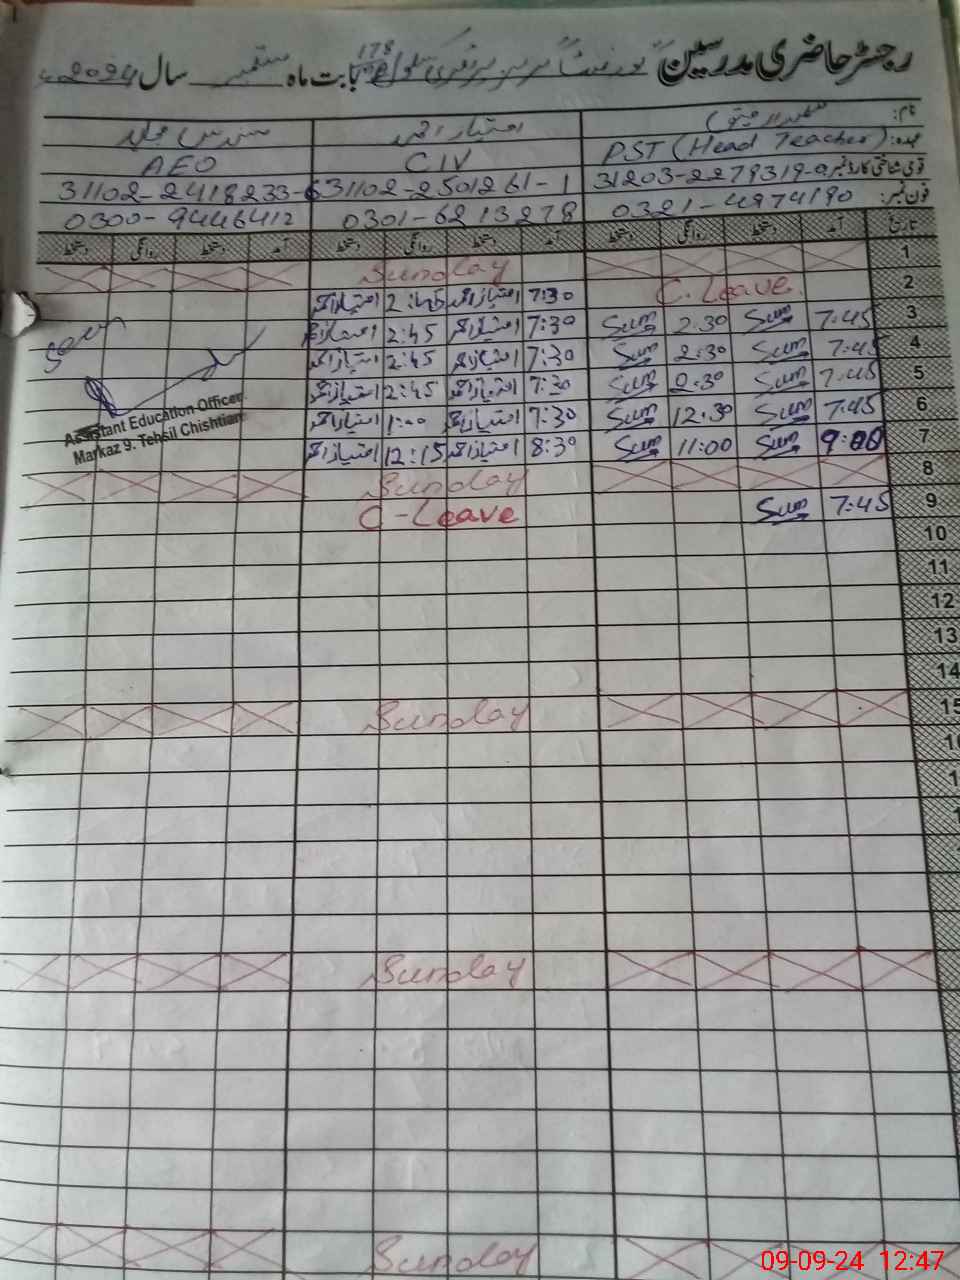 رجسٹر حاضری مدرسین گورنمنٹ 178 بابت ماہ ستمبر سال 2024
نام: امتیاز احمد
عہدہ: PST (Head Teacher) CIV AEO
قومی شناختی کارڈ نمبر 31203-2279319-9 31102-2501261-1 31102-2418233-6
فون نمبر: 0321-4974190 0301-6213278 0300-9446412
تاریخ آمد دستخط روانگی دستخط آمد دستخط روانگی دستخط آمد دستخط روانگی دستخط
1 Sunday
2 C. Leave. 7:30 امتیاز احمد 2:45 امتیاز احمد
3 7:45 Sum 2:30 Sum 7:30 امتیاز احمد 2:45 امتیاز احمد
4 7:45 Sum 2:30 Sum 7:30 امتیاز احمد 2:45 امتیاز احمد
5 7:45 Sum 2:30 Sum 7:30 امتیاز احمد 2:45 امتیاز احمد
6 7:45 Sum 12:30 Sum 7:30 امتیاز احمد 1:00 امتیاز احمد
7 9:00 Sum 11:00 Sum 8:30 امتیاز احمد 12:15 امتیاز احمد
Assistant Education Officer
Markaz 9. Tehsil Chishtian
8 Sunday
9 7:45 Sum C-Leave
10
11
12
13
14
15 Sunday
Sunday
Sunday
09-09-24 12:47